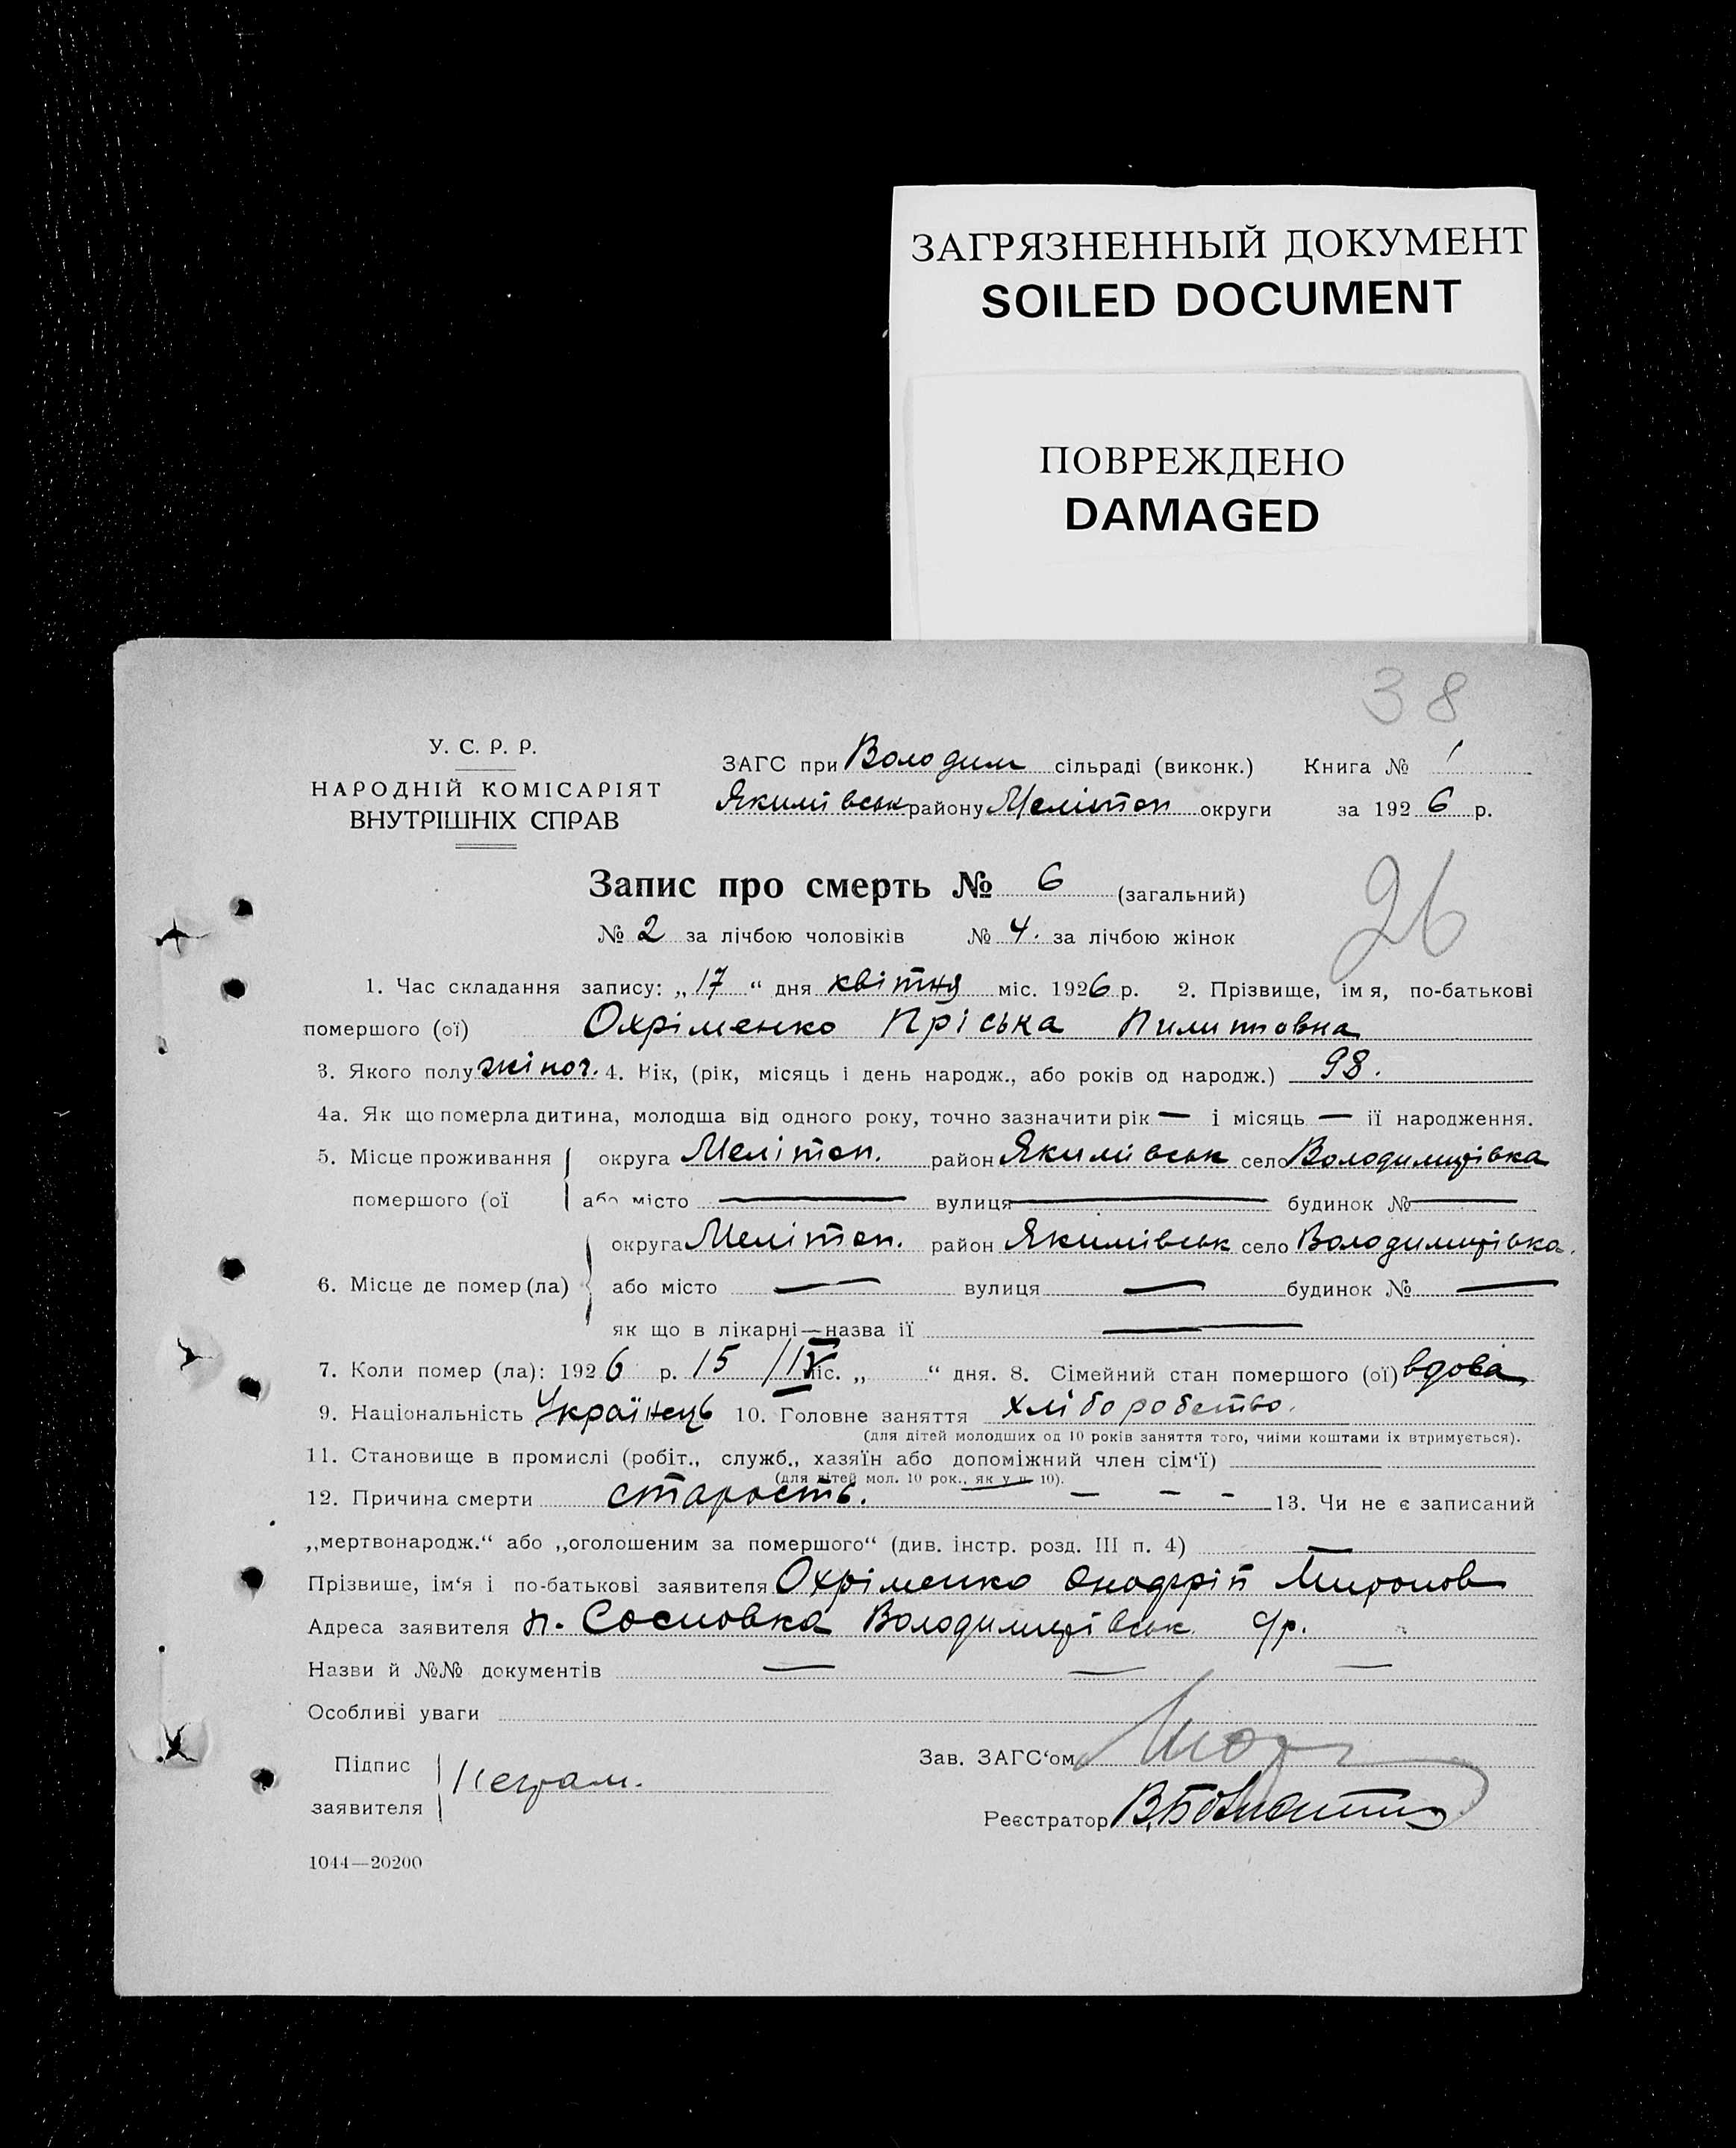 ЗАГРЯЗНЕННЫЙ ДОКУМЕНТ
SOILED DOCUMENT
ПОВРЕЖДЕНО
DAMAGED
38
У. С. Р. Р.
НАРОДНІЙ КОМІСАРІЯТ
ВНУТРІШНІХ СПРАВ
ЗАГС при Володим сільраді (виконк.) Книга № 1
Якимівськ району Мелітоп округи за 1926 р.
Запис про смерть № 6 (загальний)
26
№ 2 за лічбою чоловіків № 4. за лічбою жінок
1. Час складання запису: „17“ дня квітня міс. 1926 р. 2. Прізвище, імя, по-батькові
помершого (ої) Охріменко Пріська Пилиповна
3. Якого полу жіноч. 4. Вік, (рік, місяць і день народж., або років од народж.) 98.
4а. Як що померла дитина, молодша від одного року, точно зазначити рік — і місяць — ії народження.
5. Місце проживання округа Мелітоп. район Якимівськ село Володимирівка
помершого (ої або місто — вулиця — будинок № —
округа Мелітоп. район Якимівськ село Володимирівка.
6. Місце де помер (ла) або місто — вулиця — будинок № —
як що в лікарні—назва ії —
7. Коли помер (ла): 1926 р. 15/IV міс. „ “ дня. 8. Сімейний стан помершого (ої) вдова
9. Національність Українець 10. Головне заняття хліборобство.
(для дітей молодших од 10 років заняття того, чиїми коштами їх втримується).
11. Становище в промислі (робіт., служб., хазяїн або допоміжний член сім‘ї)
(для дітей мол. 10 рок., як у п. 10).
12. Причина смерти старость. — — — 13. Чи не є записаний
„мертвонародж.“ або „оголошеним за помершого“ (див. інстр. розд. III п. 4) —
Прізвише, ім‘я і по-батькові заявителя Охріменко Онофрій Миронов
Адреса заявителя п. Сосновка Володимирівськ с/р.
Назви й №№ документів — — —
Особливі уваги
Підпис
заявителя Неграм.
Зав. ЗАГС‘ом
Реєстратор
1044—20200